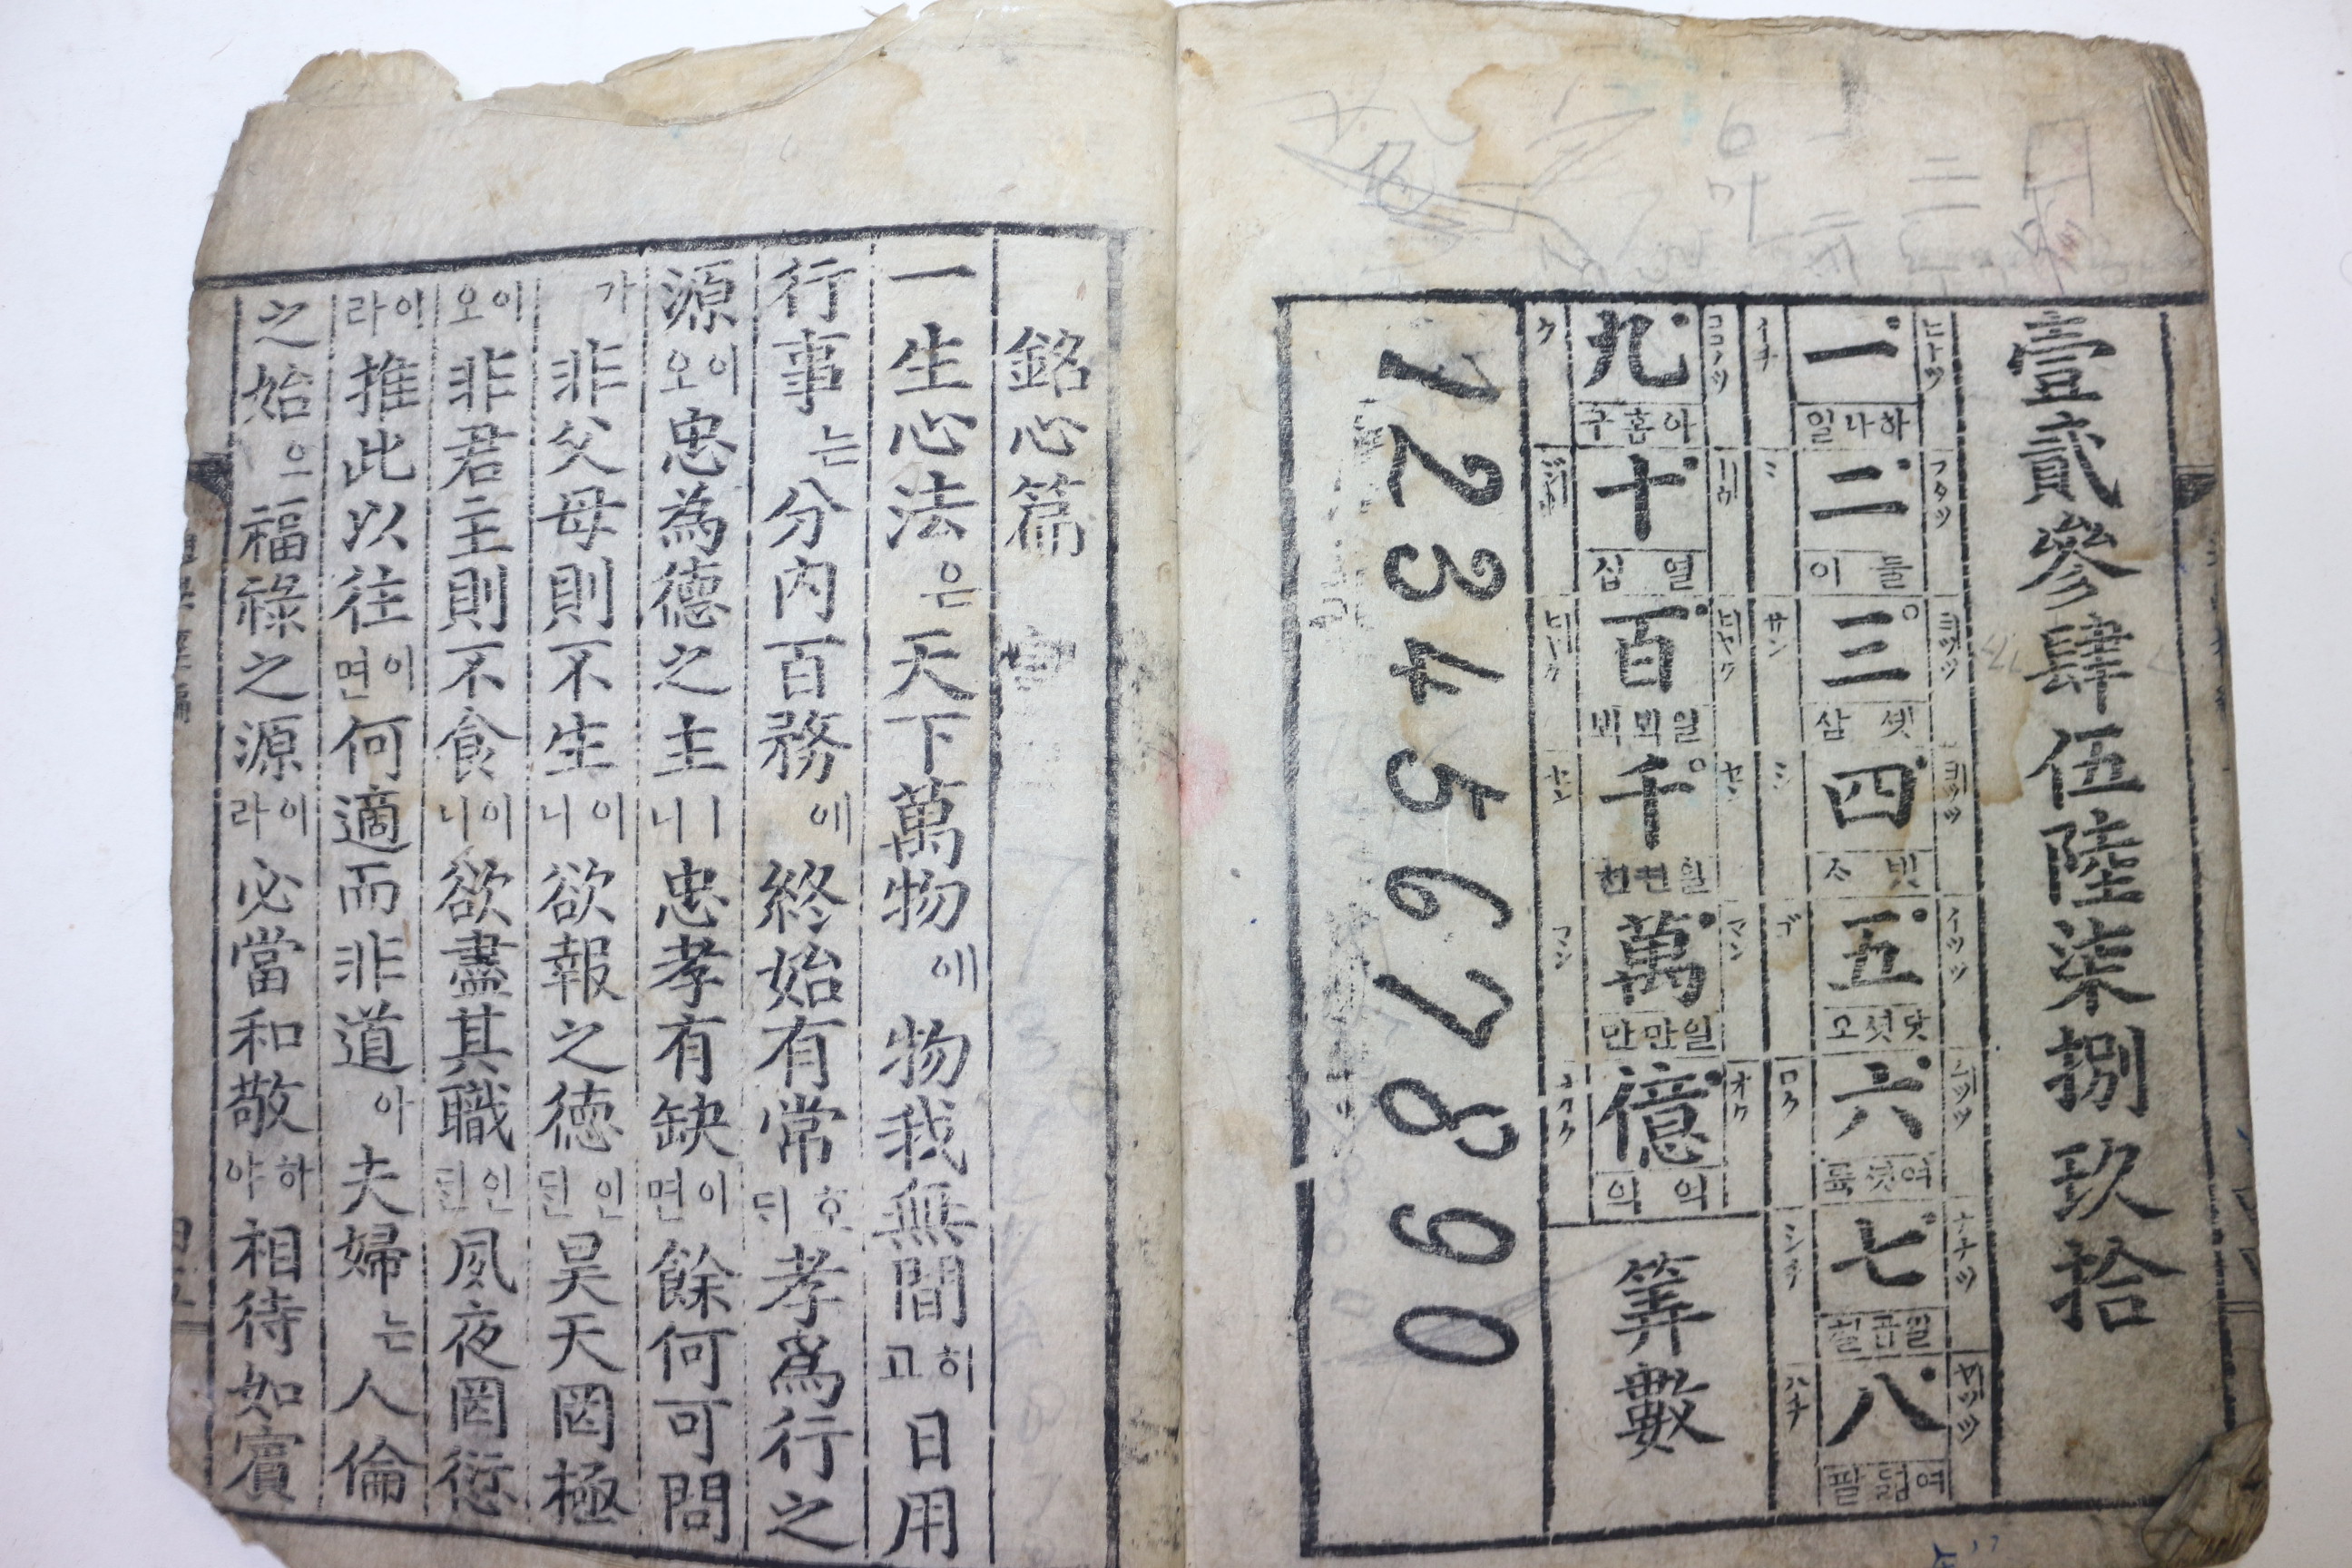 壹貳參肆伍陸柒捌玖拾
ヒトツ フタツ ミツツ ヨツツ イツツ ムツツ ナナツ ヤツツ
一 하나일 二 둘이 三 솃삼 四 五 닷셧오 六 여셧륙 七 일곱칠 八 여듧팔
イチ ニ サン シ ゴ ロク シチ ハチ
ココノツ ヒヤク セン マン オク
九 아홉구 十 열십 百 千 萬 일만만 億 억억
筭數
ク ヒヤク セン マン オク
1234567890
銘心篇
一生心法은天下萬物에物我無間히고日用
行事는分內百務에終始有常호ᄃᆡ孝爲行之
源이오忠為德之主ㅣ니忠孝有缺이면餘何可問
가非父母則不生이니欲報之德인ᄃᆡᆫ昊天罔極
이오非君主則不食이니欲盡其職인ᄃᆡᆫ夙夜罔愆
이라推此以往이면何適而非道아夫婦는人倫
之始으福祿之源이라必當和敬하야相待如賓